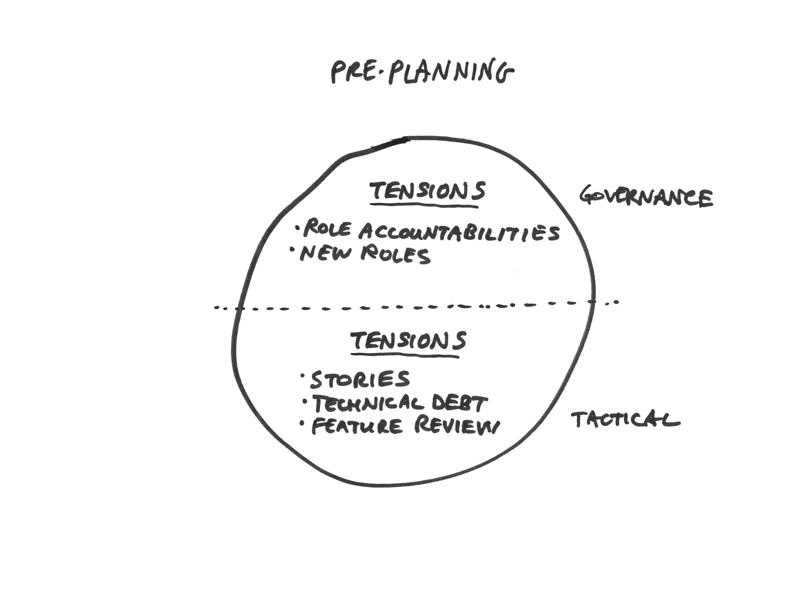 PRE-PLANNING
TENSIONS
GOVERNANCE
• ROLE ACCOUNTABILITIES
• NEW ROLES
TENSIONS
• STORIES
• TECHNICAL DEBT
• FEATURE REVIEW
TACTICAL